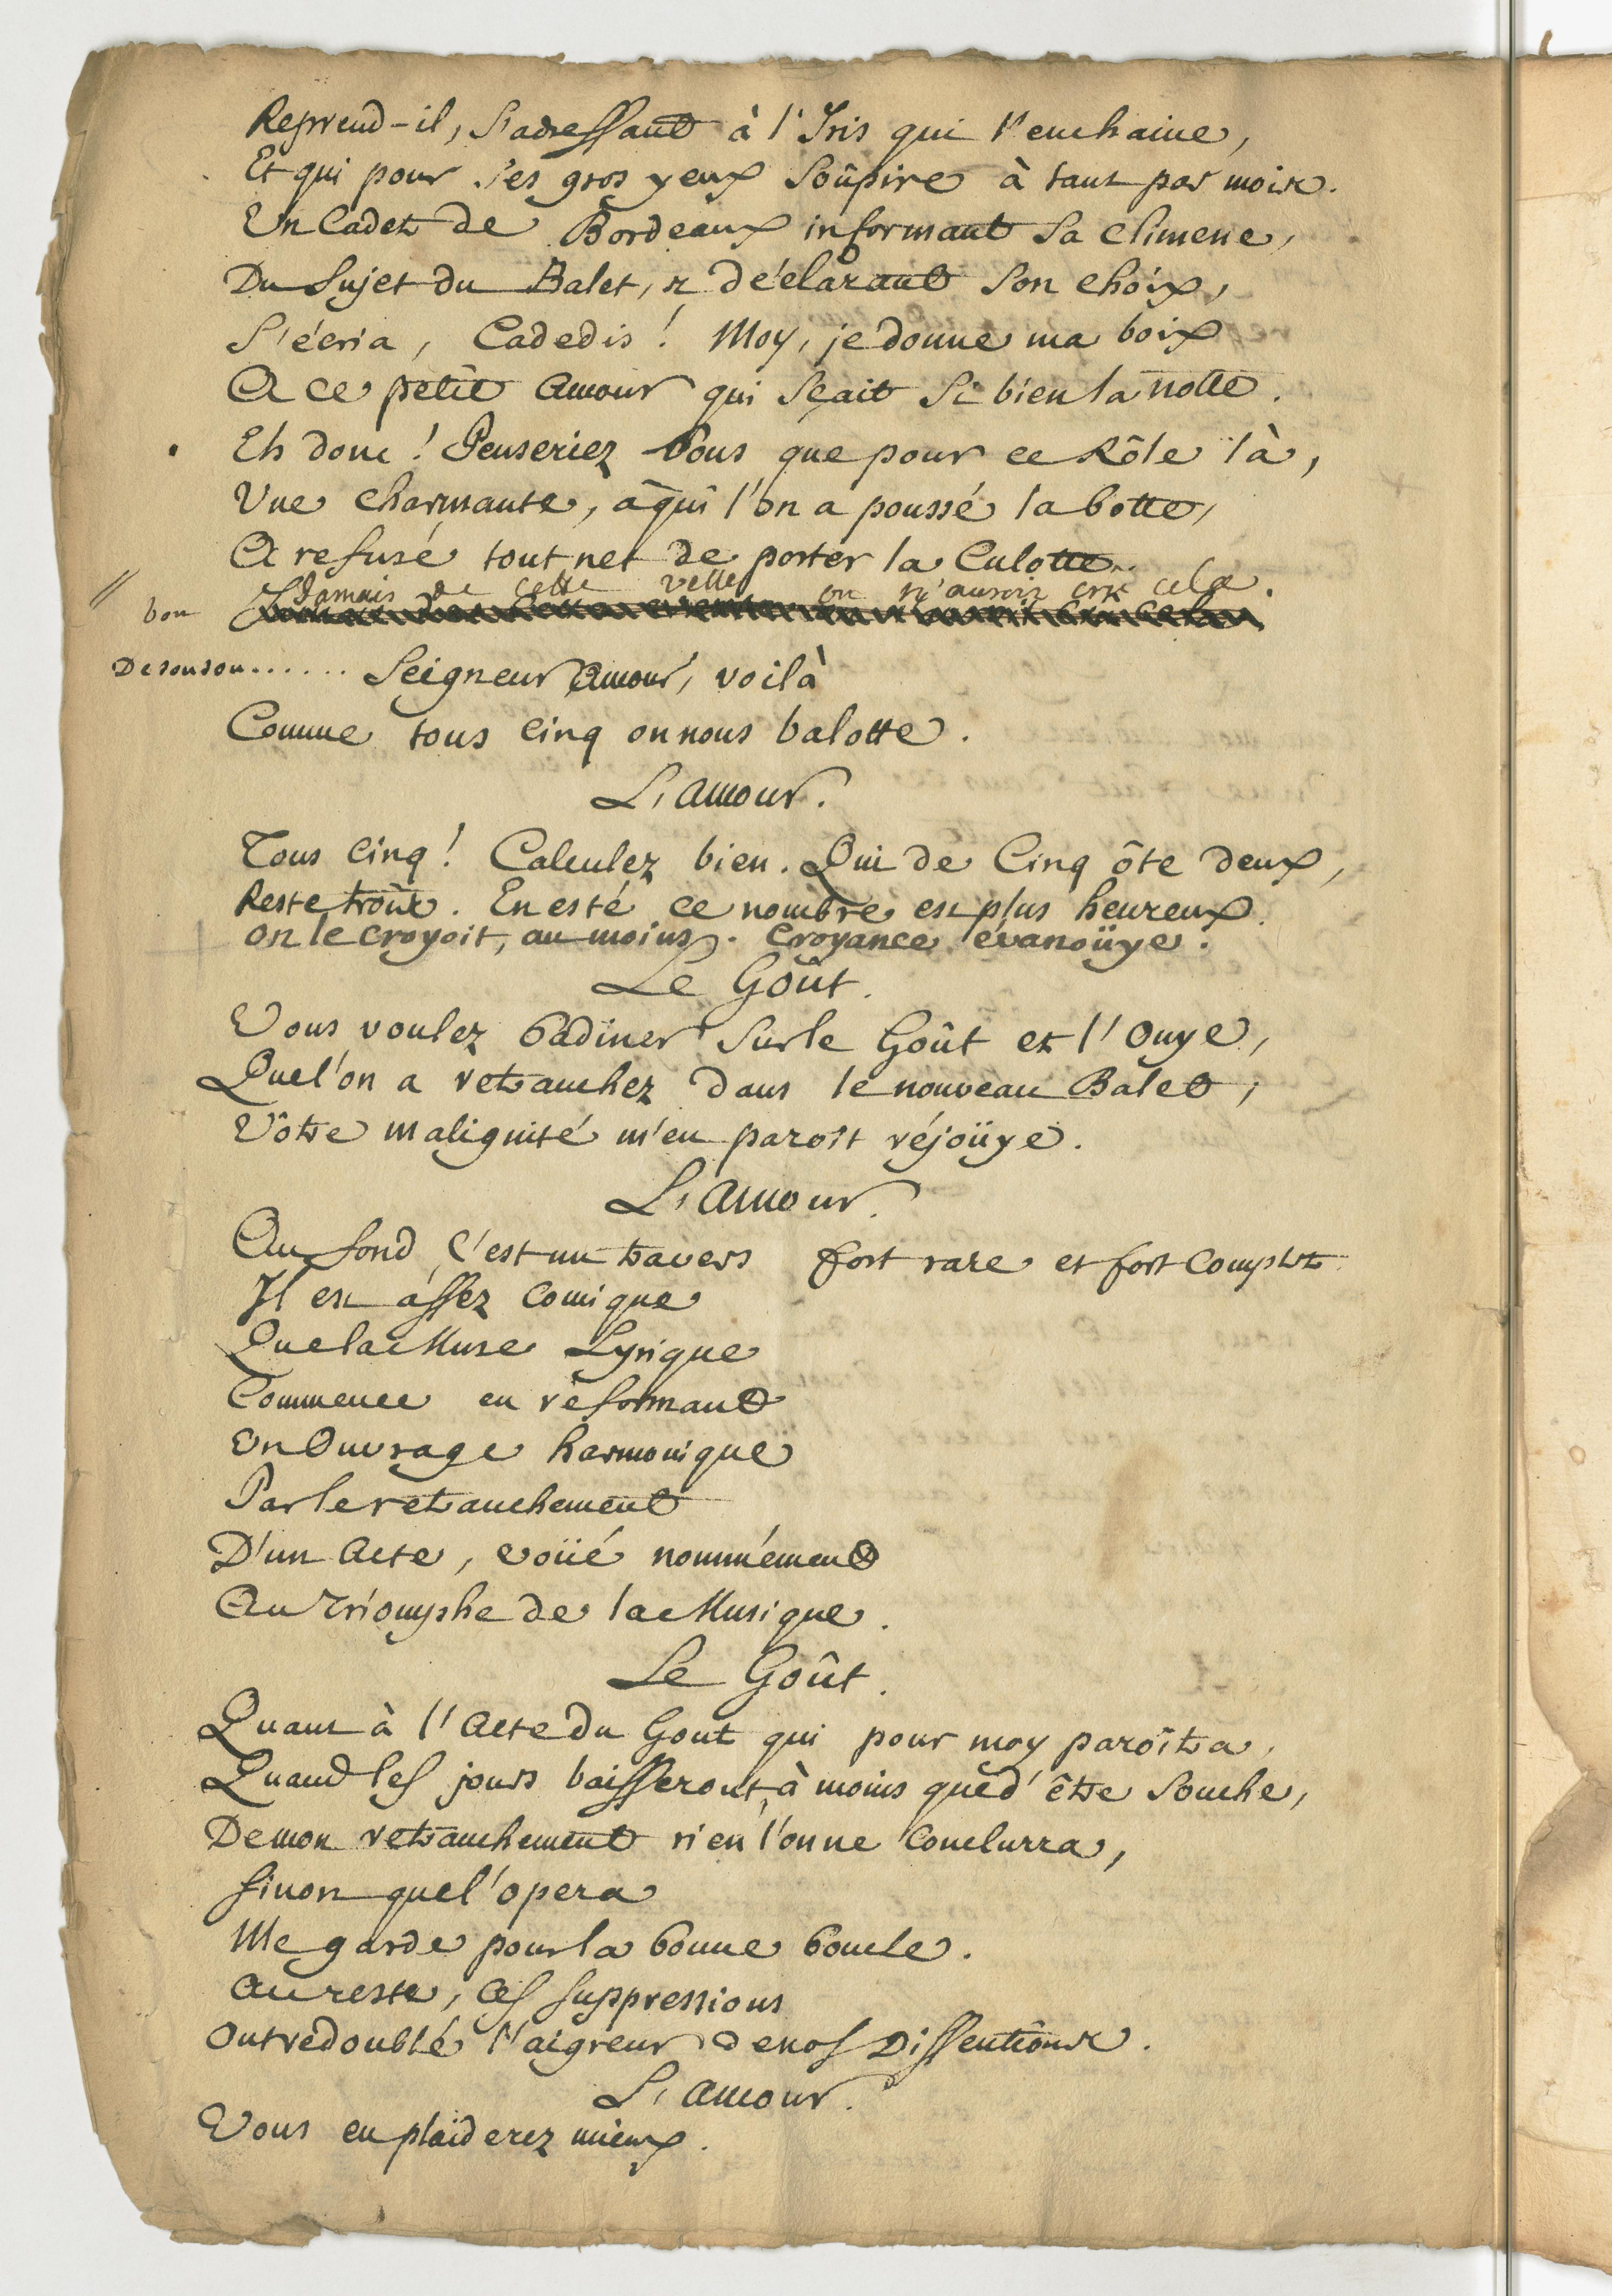 Reprend-il, s'adressant à l'Iris qui l'enchaine,
Et qui pour ses gros yeux soûpire à tant par mois.
Un Cadet de Bordeaux informant sa Climene,
Du sujet du Balet, & déclarant son choix,
S'écria, Cadedis ! Moy, je donne ma voix
A ce petit Amour qui sçait si bien la notte.
Eh donc ! Penseriez vous que pour ce Rôle là,
Une charmante, à qui l'on a poussé la botte,
A refusé tout net de porter la Culotte.
Jamais de cette on n'auroit crû cela.
bon
Seigneur Amour, voilà
Comme tous cinq on nous balotte.
L'Amour.
Tous cinq ! Calculez bien. Qui de Cinq ôte deux,
Reste trois. En esté ce nombre est plus heureux.
On le croyoit, au moins. Croyance évanoüye.
Le Goût.
Vous voulez badiner sur le Goût et l'Ouye,
Que l'on a retranchez dans le nouveau Balet ;
Vôtre malignité m'en paroît réjoüye.
L'Amour.
Au fond c'est un travers fort rare et fort Complet
Il est assez Comique
Que la Muse Lyrique
Commence en réformant
Un Ouvrage harmonique
Par le retranchement
D'un Acte, voüé nommément
Au Triomphe de la Musique.
Le Goût.
Quant à l'Acte du Gout qui pour moy paroîtra,
Quand les jours baisseront, à moins que d'être souche,
De mon retranchement rien l'on ne Conclurra,
Sinon que l'opera
Me garde pour la bonne bouche.
Au reste, ces suppressions
Ont redoublé l'aigreur de nos Dissentions.
L'Amour.
Vous en plaiderez mieux.